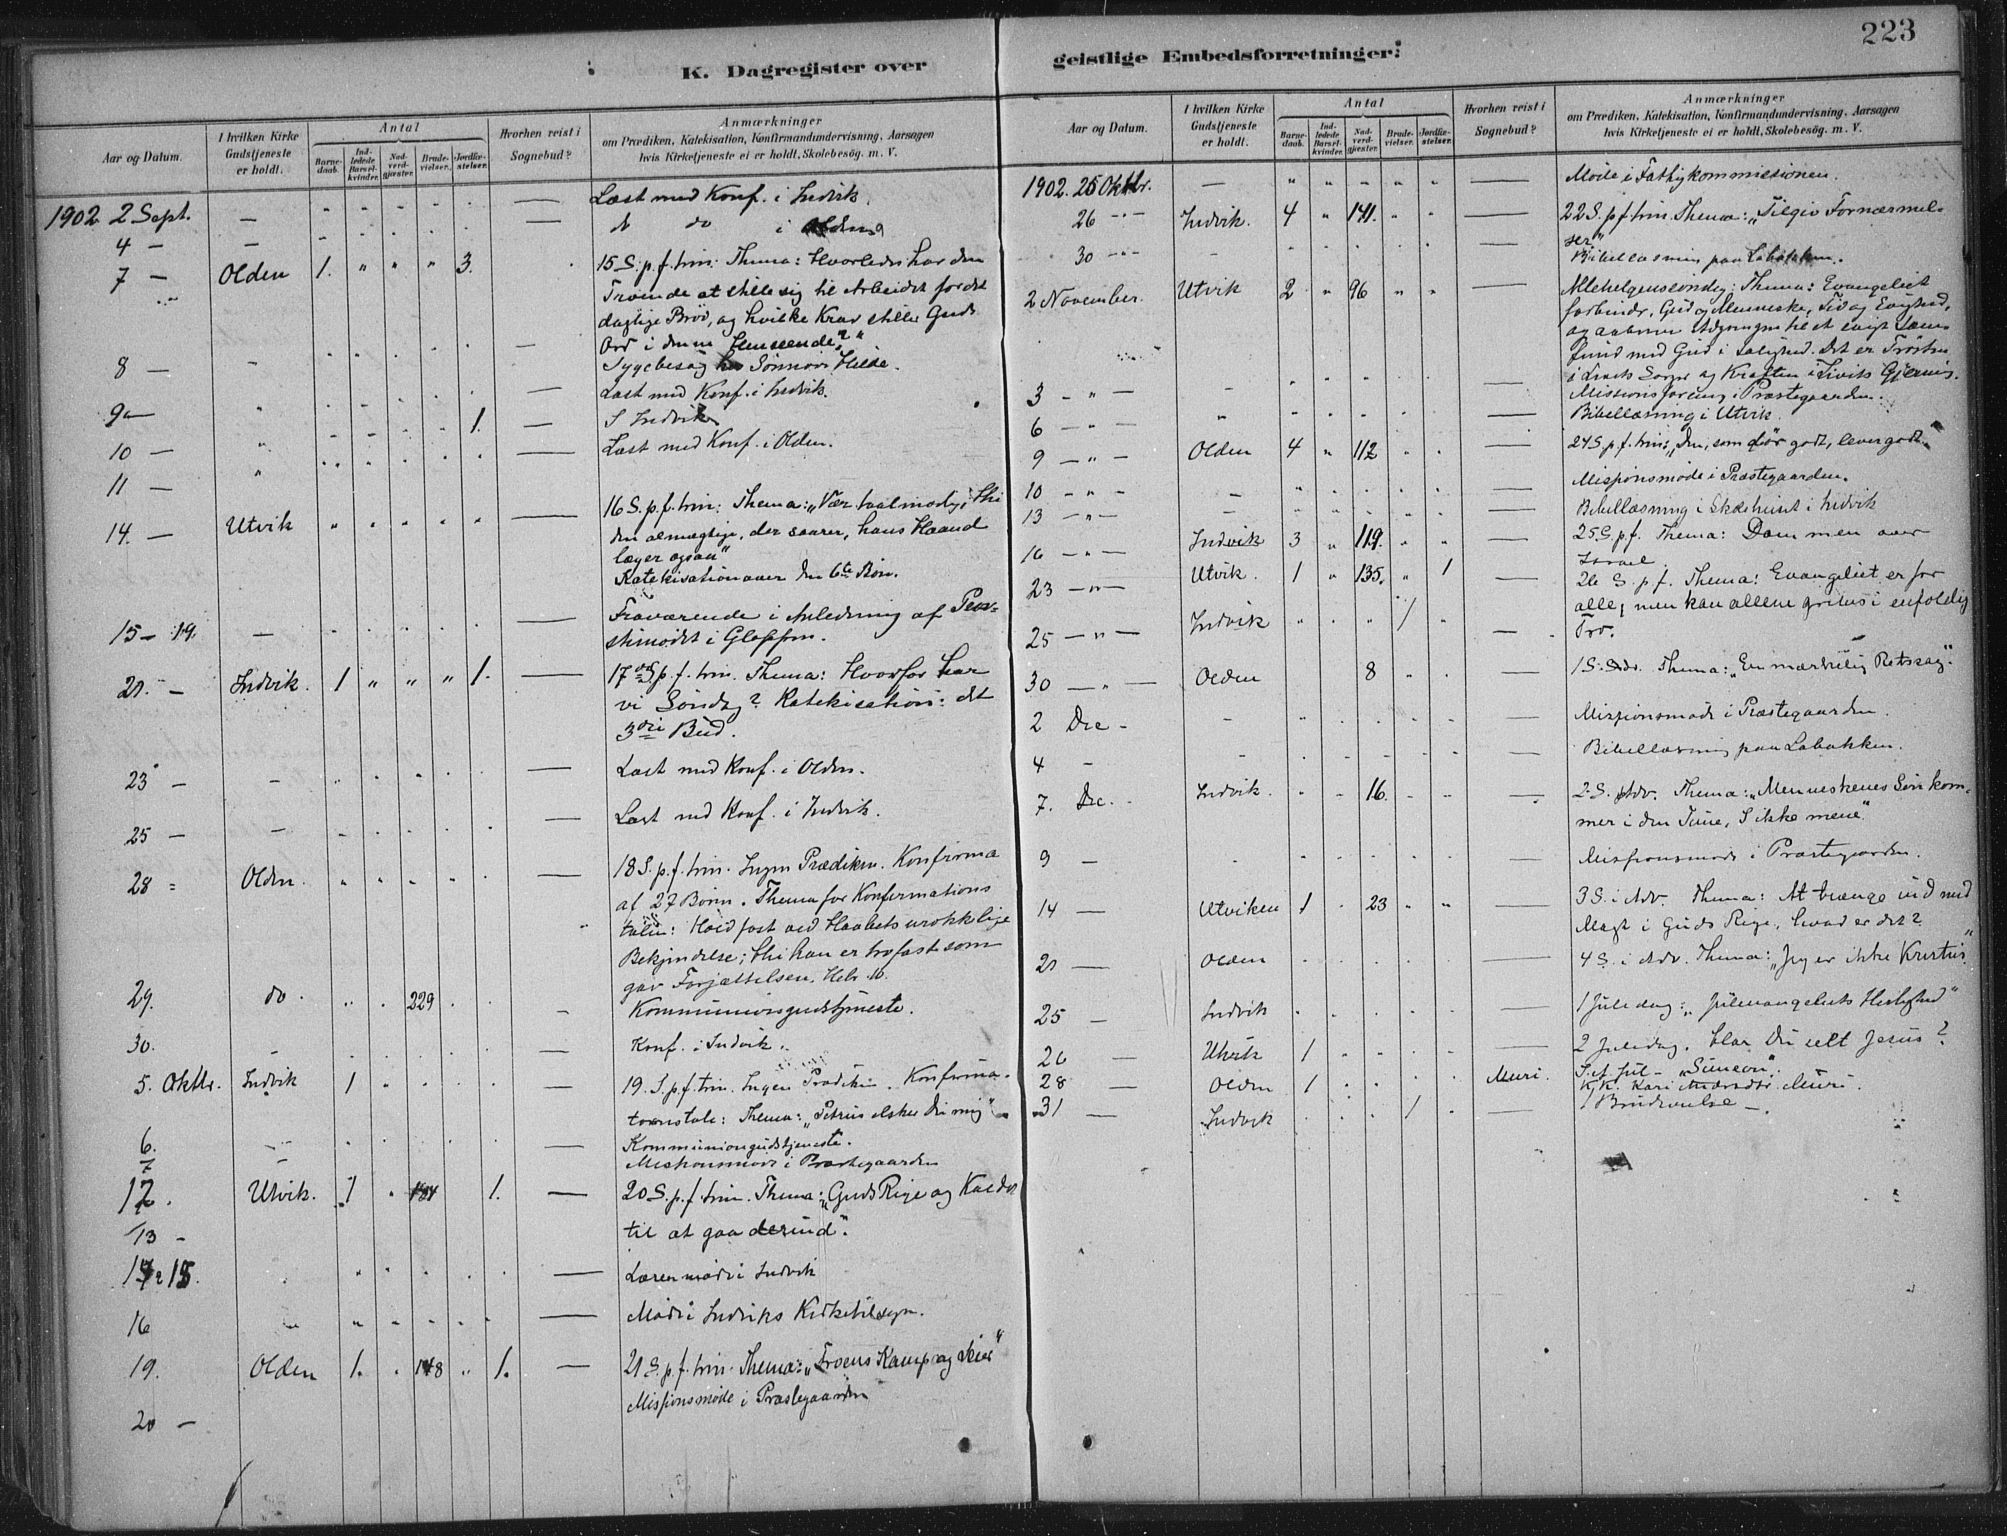 223
K. Dagregister over
Aar og Datum.
I hvilken Kirke Gudstjeneste er holdt.
Antal
Barnedaab.
Indledede Barselkvinder.
Nadverdgjæster.
Brudevielser.
Jordfæstelser.
Hvorhen reist i Sognebud?
Anmærkninger
om Prædiken, Katekisation, Konfirmandundervisning, Aarsagen
hvis Kirketjeneste ei er holdt, Skolebesög m. V.
1902 2 Sept. — Læst med Konf. i Indvik.
4 — — do i Olden
7 — Olden 1. " " " 3. 15 S. p. f. trin. Thema: Hvorledes har den
Troende at stille sig til Arbeidet for det
daglige Brød, og hvilke Krav stiller Guds
Ord i denne Henseende?"
8 — Sygebesøg hos Hilde.
9 — Læst med Konf. i Indvik.
10 — 1. I Indvik
11 — Læst med Konf. i Olden.
14. — Utvik " " " " " 16 S. p. f. trin: Thema: "Vær taalmodig, thi
den almægtige, der saarer, hans Haand
læger ogsaa"
Katekisation over den 6te Bøn.
15 – 19. — Fraværende i Anledning af
i Gloppen.
21. — Indvik. 1 " " " 1. 17de S. p. f. trin. Thema: Hvorfor har
vi Søndag? Katekisation: det
3die Bud.
23 — Læst med Konf. i Olden.
25 — Læst med Konf. i Indvik.
28 Olden. 18 S. p. f. trin. Ingen Prædiken. Konfirma
af 27 Børn. Thema for Konfirmations
talen: Hold fast ved Haabets urokkelige
Bekjendelse; thi han er trofast som
gav Forjættelsen. Heb. 10.
29. do. 229 Kommuniongudstjeneste.
30. — Konf. i Indvik.
5. Oktbr. Indvik 1 19. S. p. f. trin. Ingen Prædiken. Konfirma-
tionstale: Thema: "Petrus elsker du mig"
6. Kommuniongudstjeneste.
7 Missionsmøde i Præstegaarden
12. Utvik. 1 1. 20 S. p. f. trin. Thema: "Guds Rige og Kaldet
13 — til at gaa derind".
15. Læremøde i Indvik
16 Møde i Indviks Kirketilsyn.
19. Olden 1. 148 1. 21 S. p. f. trin. Thema: "Troens Kamp og Seier"
20 — Missionsmøde i Præstegaarden
geistlige Embedsforretninger.
Aar og Datum.
I hvilken Kirke Gudstjeneste er holdt.
Antal
Barnedaab.
Indledede Barselkvinder.
Nadverdgjæster.
Brudevielser.
Jordfæstelser.
Hvorhen reist i Sognebud?
Anmærkninger
om Prædiken, Katekisation, Konfirmandundervisning, Aarsagen
hvis Kirketjeneste ei er holdt, Skolebesög m. V.
1902. 25 Oktbr. — Møde i Fattigkommissionen.
26 Indvik. 4 " 141. 22 S. p. f. trin. Thema: "Tilgiv Fornærmel-
ser"
30 Bibellæsning paa Løbakken.
2 November. Utvik 2 " 96 Allehelgenssøndag: Thema: Evangeliet
forbinder Gud og Menneske, Tid og Evighed,
og aabner Adgangen til et evigt Sam-
fund med Gud i Salighed. Det er Trøsten
i Livets Sorger og Kraften i Livets Gjerning.
3 Missionsforening i Præstegaarden.
6 Bibellæsning i Utvik.
9 Olden 4 " 112 24 S. p. f. trin: "Den, som dør godt, lever godt."
10 Missionsmøde i Præstegaarden.
13 Bibellæsning i Skolehuset i Indvik
16 Indvik 3 " 119. 25 S. p. f. Thema: Dommen over
Israel.
23 Utvik. 1 " 135. " 1 26 S. p. f. Thema: Evangeliet er for
alle, men kan allene gribes i enfoldig
Tro.
25 Indvik 1
30 Olden 8 1 S. Adv. Thema: "En mærkelig Retssag".
2 Dec — Missionsmøde i Præstegaarden.
4 — Bibellæsning paa Løbakken.
7. Dec. Indvik. 16. 2. S. Adv. Thema: "Menneskenes Søn kom-
mer i den Time, I ikke mene".
9 — Missionsmøde i Præstegaarden.
14 — Utviken 1 23 3 S. i Adv. Thema: At trænge ind med
Magt i Guds Rige, hvad er det?
21 — Olden 4 S. i Adv. Thema: "Jeg er ikke Kristus"
25 — Indvik 1 Juledag: "Juleevangeliets Herlighed"
26 — Utvik 1 2 Juledag. Har Du seet Jesus?
28 — Olden 1 Muri. S. e. Jul — "Simeon".
K. K. Kari Muri.
31 — Indvik 1 1 Brudevielse —.